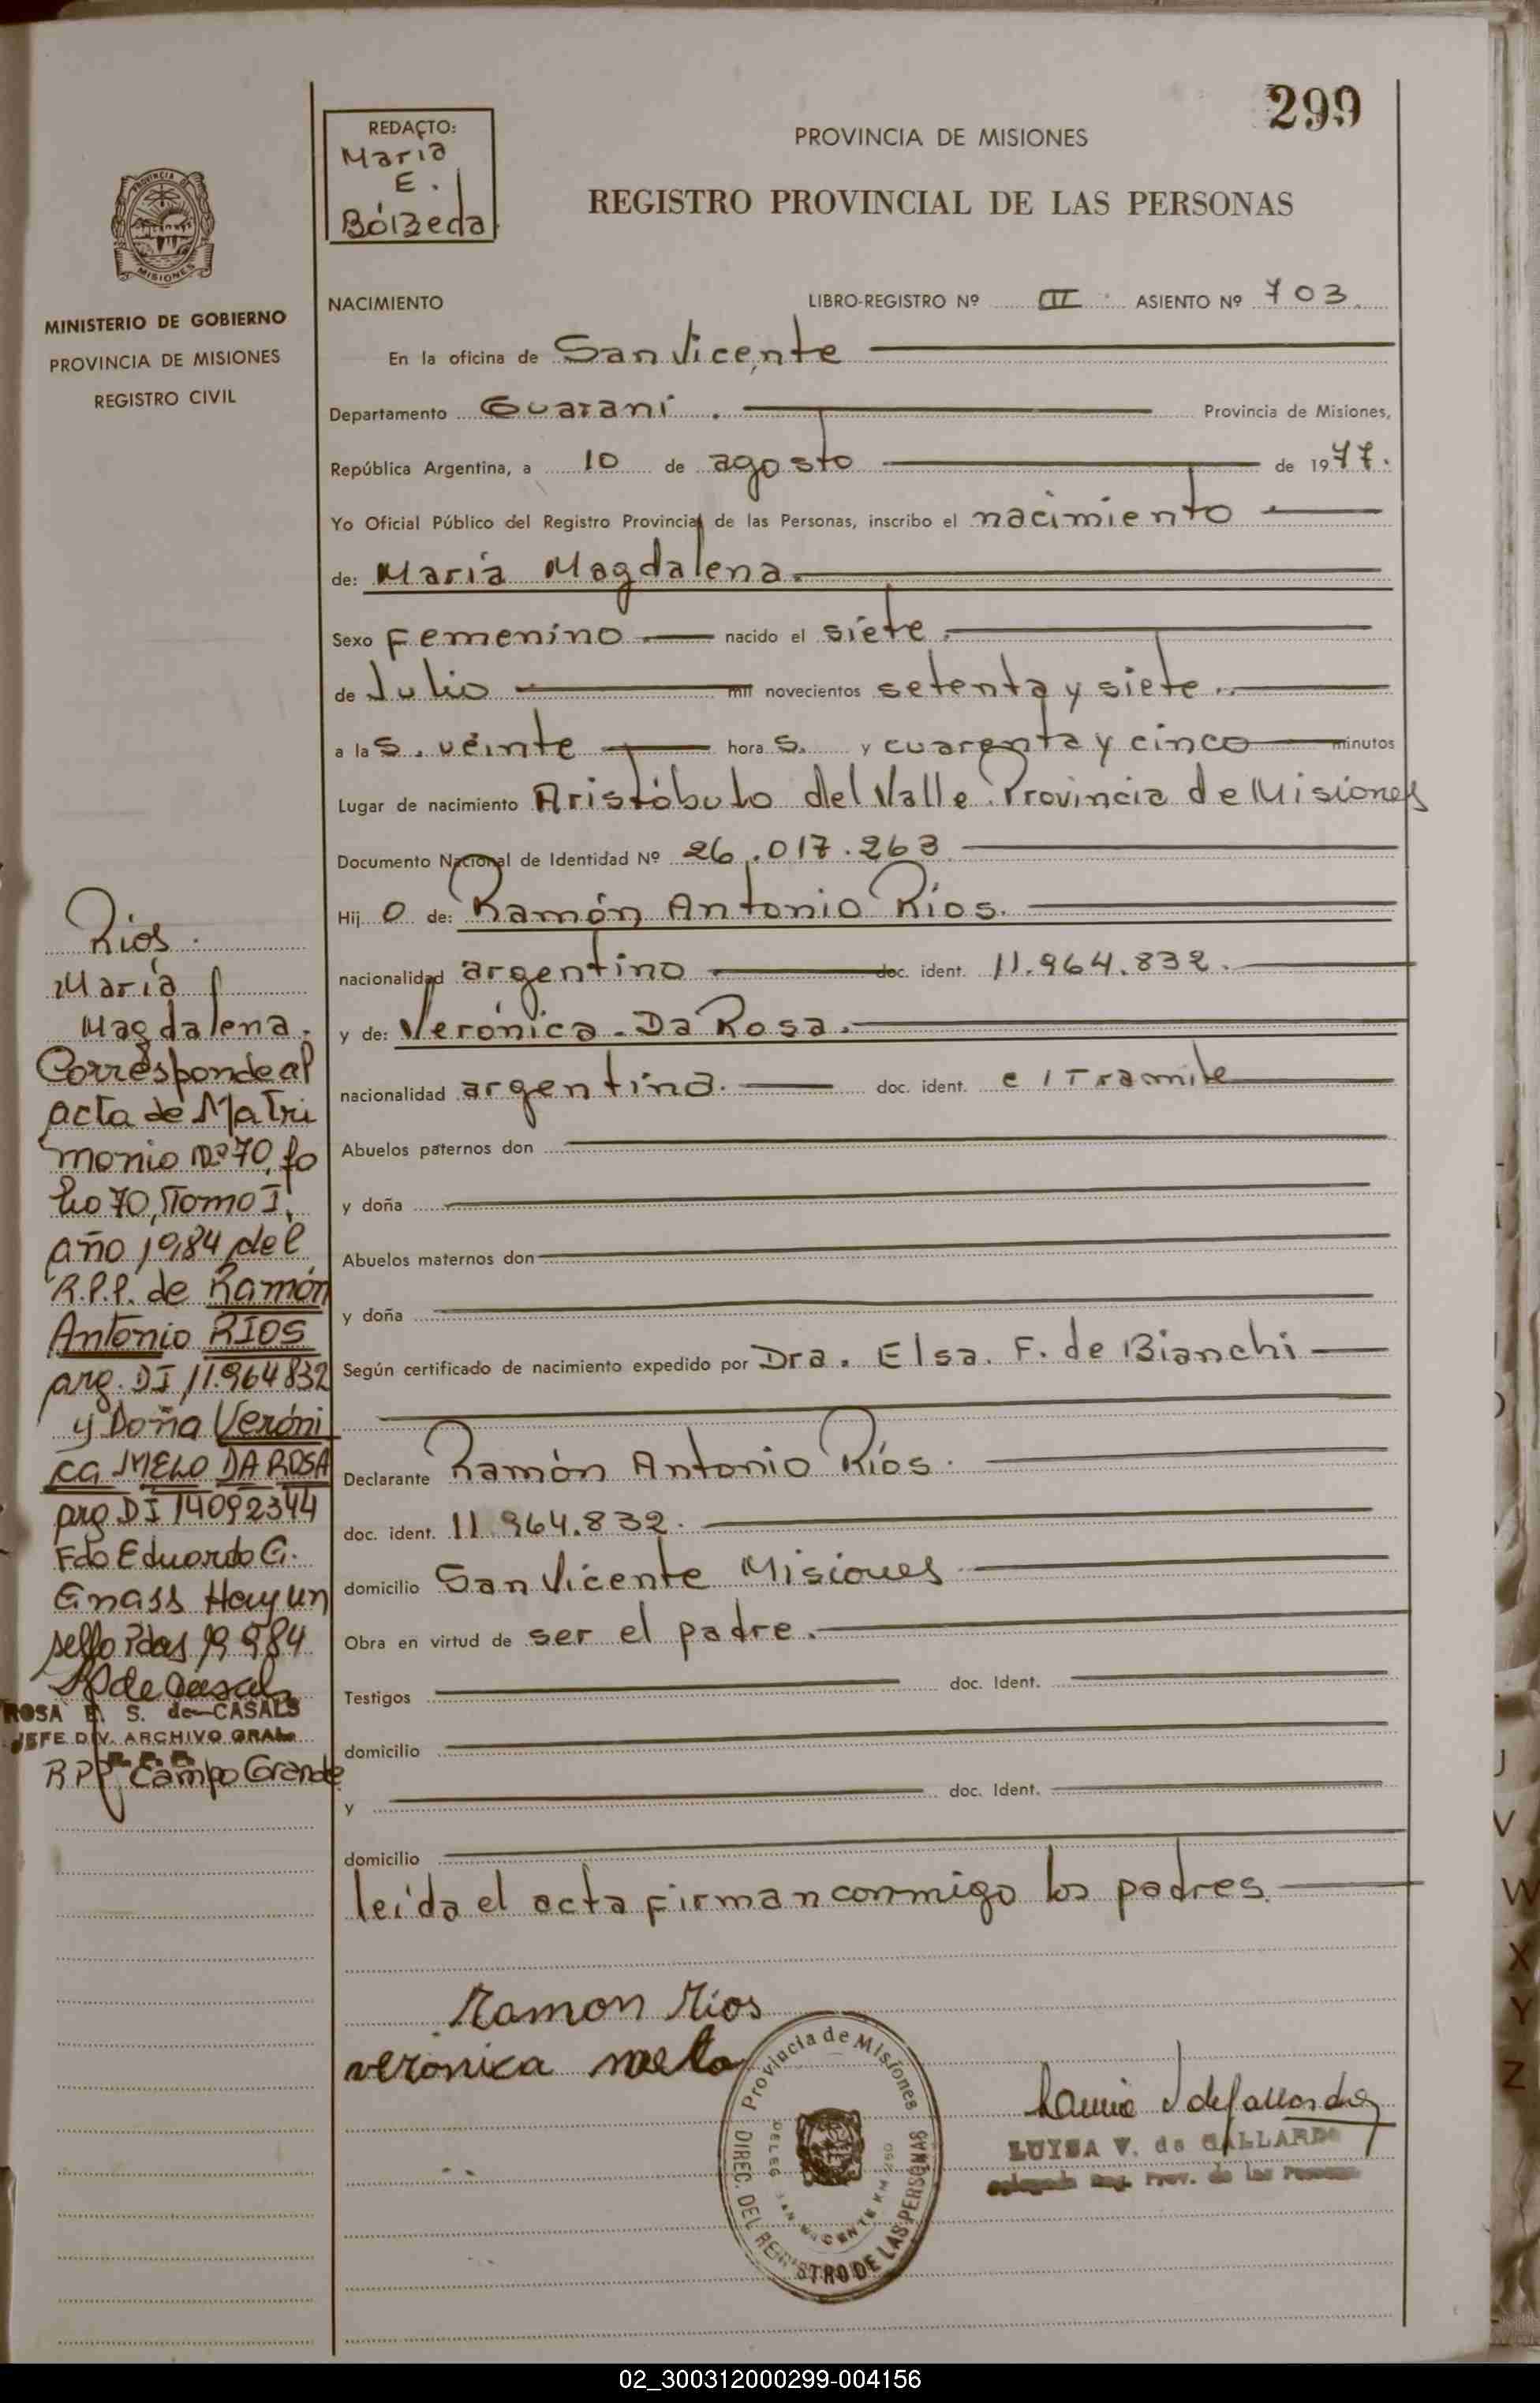 299
REDACTO:
Maria
E.
Bólzeda
PROVINCIA DE MISIONES
REGISTRO PROVINCIAL DE LAS PERSONAS
PROVINCIA DE
MISIONES
MINISTERIO DE GOBIERNO
PROVINCIA DE MISIONES
REGISTRO CIVIL
NACIMIENTO LIBRO-REGISTRO Nº III ASIENTO Nº 703
En la oficina de San Vicente
Departamento Guaraní. Provincia de Misiones,
República Argentina, a 10 de agosto de 1977.
Yo Oficial Público del Registro Provincial de las Personas, inscribo el nacimiento
de: María Magdalena.
Sexo Femenino nacido el siete.
de Julio mil novecientos setenta y siete..
a las. veinte horas. y cuarenta y cinco minutos
Lugar de nacimiento Aristóbulo del Valle. Provincia de Misiones
Documento Nacional de Identidad Nº 26.017.263
Hijo de: Ramón Antonio Ríos.
nacionalidad argentino doc. ident. 11.964.832.
y de: Verónica - Da Rosa.
nacionalidad argentina. doc. ident. e/Tramite
Abuelos paternos don
y doña
Abuelos maternos don
y doña
Según certificado de nacimiento expedido por Dra. Elsa. F. de Bianchi
Declarante Ramón Antonio Ríos.
doc. ident. 11.964.832.
domicilio San Vicente Misiones
Obra en virtud de ser el padre.
Testigos doc. Ident.
domicilio
y doc. Ident.
domicilio
leída el acta firman conmigo los padres.
Ramon Rios
veronica melo
LUISA V. de GALLARDO
Reg. Prov. de las Personas
Provincia de Misiones
DIREC. DEL REGISTRO DE LAS PERSONAS
DELEG. SAN VICENTE KM
Rios.
María
Magdalena.
Corresponde al
acta de Matri
monio Nº 70, fo
lio 70, Tomo I,
año 1984 del
R.P.P. de Ramón
Antonio RIOS
arg. DI 11.964832
y Doña Veróni
ca MELO DA ROSA
arg DI 14092344
Fdo Eduardo G.
Gnass Hay un
sello Pdas 19 9 84
ROSA E. S. de CASALS
JEFE DIV. ARCHIVO GRAL.
R.P.P.
RPP Campo Grande
J
V
W
X
Y
Z
02_300312000299-004156